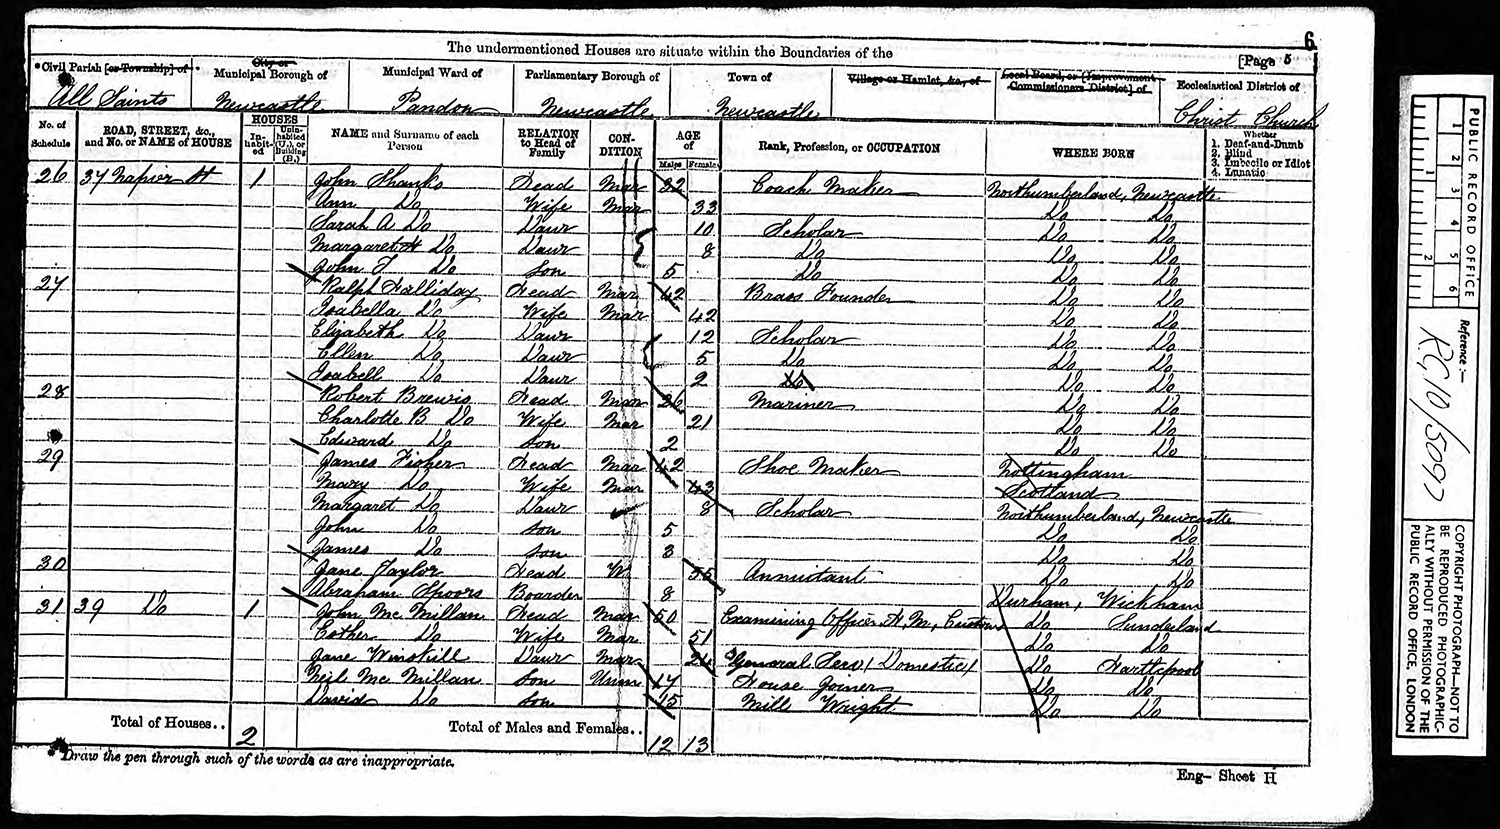 6
The undermentioned Houses are situate within the Boundaries of the
[Page 5
Civil Parish [or Township] of
City or Municipal Borough of
Municipal Ward of
Parliamentary Borough of
Town of
Village or Hamlet, &c., of
Local Board, or [Improvement Commissioners District] of
Ecclesiastical District of
All Saints Newcastle Pandon Newcastle Newcastle Christ Church
No. of Schedule
ROAD, STREET, &c., and No. or NAME of HOUSE
HOUSES
Inhabited
Uninhabited (U.), or Building (B.)
NAME and Surname of each Person
RELATION to Head of Family
CONDITION
AGE of
Males Females
Rank, Profession, or OCCUPATION
WHERE BORN
Whether
1. Deaf-and-Dumb
2. Blind
3. Imbecile or Idiot
4. Lunatic
26 37 Napier St 1 John Shanks Head Mar 32 Coach Maker Northumberland, Newcastle
Ann Do Wife Mar 33 Do Do
Sarah A Do Daur 10 Scholar Do Do
Margaret H Do Daur 8 Do Do Do
John T Do Son 5 Do Do Do
27 Ralph Halliday Head Mar 42 Brass Founder Do Do
Isabella Do Wife Mar 42 Do Do
Elizabeth Do Daur 12 Scholar Do Do
Ellen Do Daur 5 Do Do Do
Isabell Do Daur 2 Do Do Do
28 Robert Brewis Head Mar 26 Mariner Do Do
Charlotte B Do Wife Mar 21 Do Do
Edward Do Son 2 Do Do
29 James Fisher Head Mar 42 Shoe Maker Nottingham
Mary Do Wife Mar 43 Scotland
Margaret Do Daur 8 Scholar Northumberland, Newcastle
John Do Son 5 Do Do
James Do Son 3 Do Do
30 Jane Taylor Head W 55 Annuitant Do Do
Abraham Spoors Boarder 8 Durham, Wickham
31 39 Do 1 John Mc Millan Head Mar 50 Examining Officer H, M, Customs Do Sunderland
Esther Do Wife Mar 51 Do Do
Jane Winskill Daur Mar 24 General Serv (Domestic) Do Hartlepool
Neil Mc Millan Son Unm 17 House Joiner Do Do
David Do Son 15 Mill Wright Do Do
Total of Houses.. 2
Total of Males and Females.. 12 13
* Draw the pen through such of the words as are inappropriate.
Eng- Sheet H
PUBLIC RECORD OFFICE
1 2 3 4 5 6
1 2
Reference :-
RG 10/5097
COPYRIGHT PHOTOGRAPH-NOT TO BE REPRODUCED PHOTOGRAPHICALLY WITHOUT PERMISSION OF THE PUBLIC RECORD OFFICE, LONDON